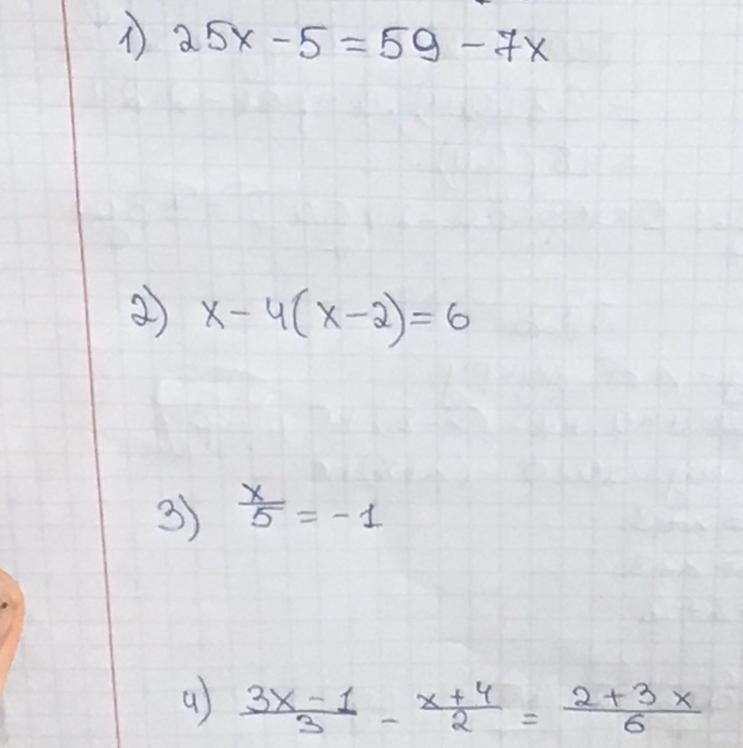 1) 25x - 5 = 59 - 7x
2) x - 4(x - 2) = 6
3) x/5 = -1
4) (3x - 1)/3 - (x + 4)/2 = (2 + 3x)/6